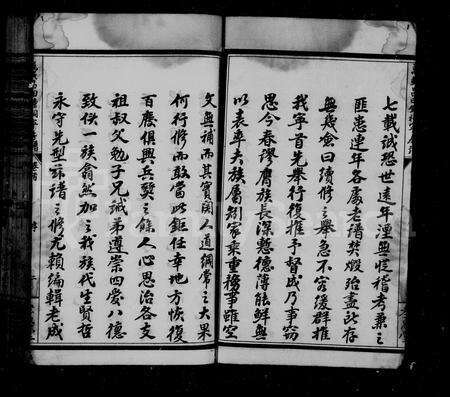 七載誠恐世遠年湮無從稽考兼之
匪患連年各處老譜焚燬殆盡此存
無幾僉曰續修之舉急不容緩群推
我寧首先舉行復推予督成乃事竊
思今春謬膺族長深慙德薄能鮮無
以表率夫族屬刱家乘重務事雖空
文無補而其實關人道綱常之大果
何行修而敢當此鉅任幸地方恢復
百廢俱興兵燹之餘人心思治各支
祖叔父勉子兄誡弟遵崇四字八德
致佚一族翕然加之我族代生賢哲
永守先型茲譜之修尤賴編輯老成